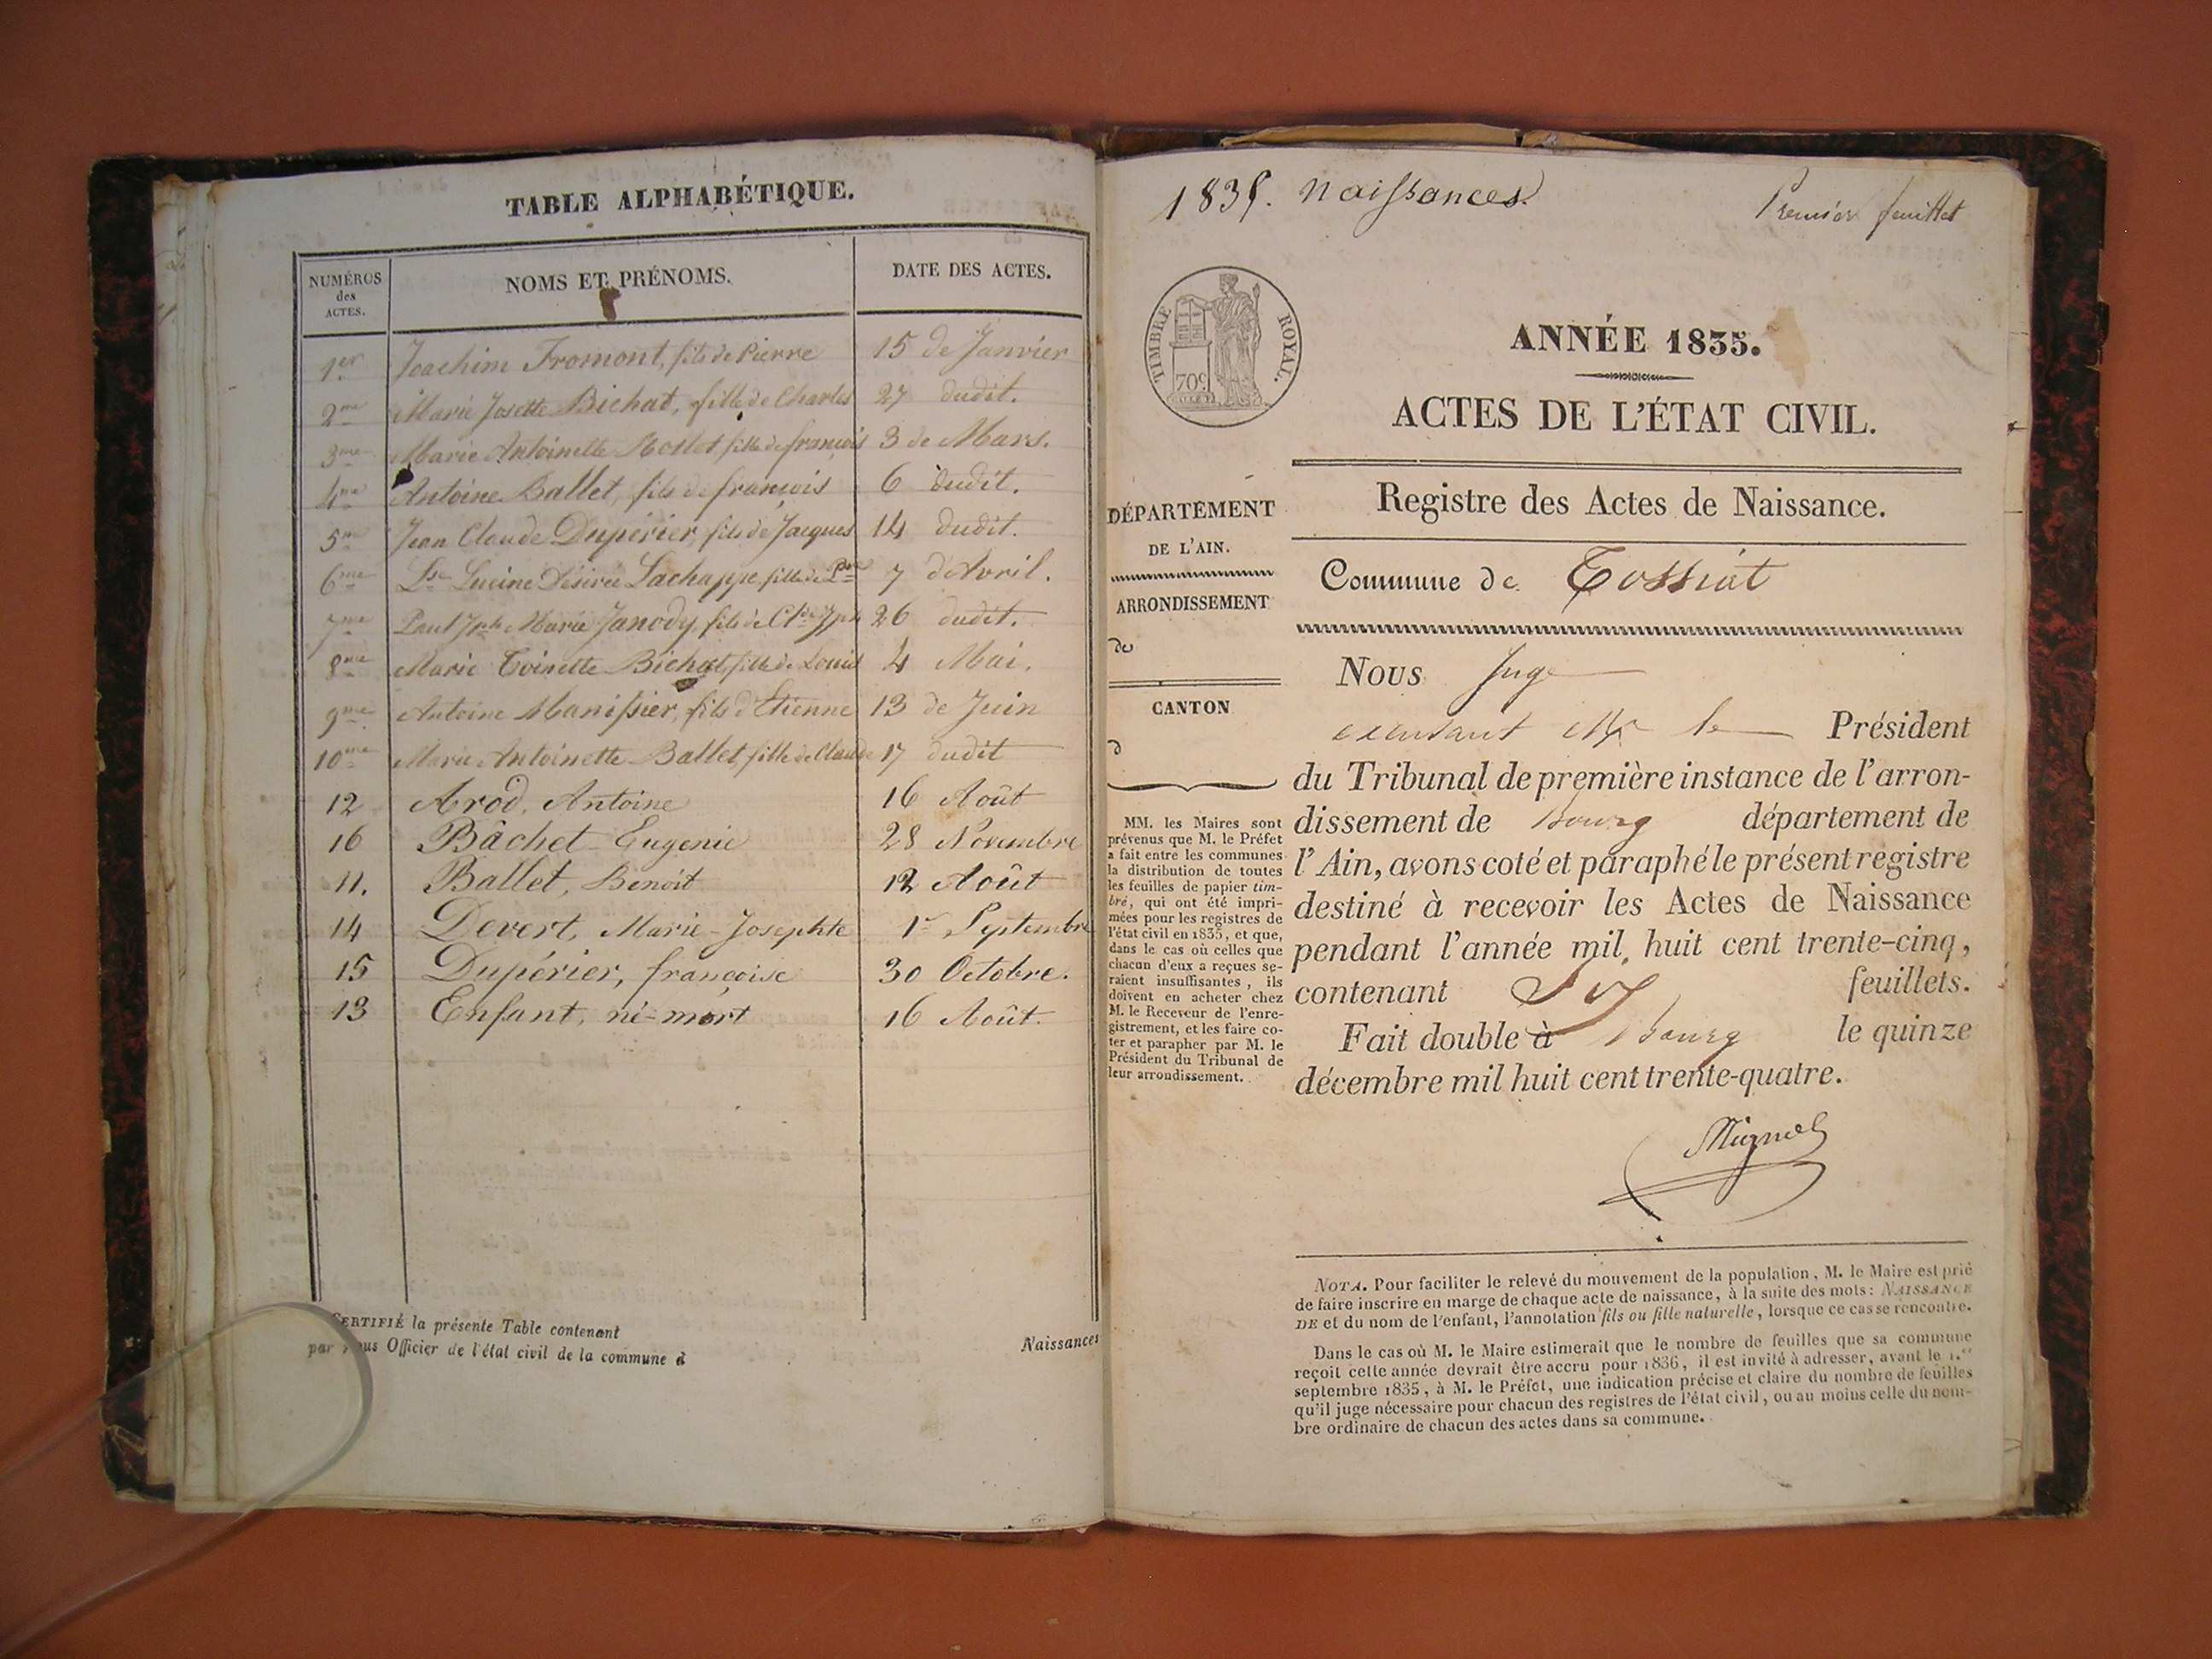 TABLE ALPHABÉTIQUE.
NUMÉROS
des
ACTES.
NOMS ET PRÉNOMS.
DATE DES ACTES.
1er Joachim Fromont, fils de Pierre 15 de Janvier
2me Marie Josette Bichat, fille de Charles 27 dudit.
3me Marie Antoinette Mollet fille de françois 3 de Mars.
4me Antoine Ballet, fils de françois 6 dudit.
5me Jean Claude Dupérier, fils de Jacques 14 dudit.
6me Lucine Désirée Lachappe, fille de 7 d'Avril.
7me Paul Marie Janody, fils de 26 dudit.
8me Marie Toinette Bichat, fille de Louis 4 Mai.
9me Antoine Manissier, fils d'Etienne 13 de Juin
10me Marie Antoinette Ballet, fille de Claude 17 dudit
12 Arod, Antoine 16 Août
16 Bâchet Eugenie 28 Novembre
11. Ballet, Benoit 12 Août
14 Devert, Marie-Josephte 1r Septembre
15 Dupérier, françoise 30 Octobre.
13 Enfant, né-mort 16 Août.
CERTIFIÉ la présente Table contenant Naissances
par nous Officier de l'état civil de la commune d
1835. Naissances. Premier feuillet
TIMBRE ROYAL.
70c
ANNÉE 1835.
ACTES DE L'ÉTAT CIVIL.
Registre des Actes de Naissance.
Commune de Tossiat
DÉPARTEMENT
DE L'AIN.
ARRONDISSEMENT
de
CANTON
d
MM. les Maires sont
prévenus que M. le Préfet
a fait entre les communes
la distribution de toutes
les feuilles de papier tim-
bré, qui ont été impri-
mées pour les registres de
l'état civil en 1835, et que,
dans le cas où celles que
chacun d'eux a reçues se-
raient insuffisantes, ils
doivent en acheter chez
M. le Receveur de l'enre-
gistrement, et les faire co-
ter et parapher par M. le
Président du Tribunal de
leur arrondissement.
Nous Juge
Mr le Président
du Tribunal de première instance de l'arron-
dissement de Bourg département de
l'Ain, avons coté et paraphé le présent registre
destiné à recevoir les Actes de Naissance
pendant l'année mil huit cent trente-cinq,
contenant feuillets.
Fait double à Bourg le quinze
décembre mil huit cent trente-quatre.
NOTA. Pour faciliter le relevé du mouvement de la population, M. le Maire est prié
de faire inscrire en marge de chaque acte de naissance, à la suite des mots: NAISSANCE
DE et du nom de l'enfant, l'annotation fils ou fille naturelle, lorsque ce cas se rencontre.
Dans le cas où M. le Maire estimerait que le nombre de feuilles que sa commune
reçoit cette année devrait être accru pour 1836, il est invité à adresser, avant le 1.er
septembre 1835, à M. le Préfet, une indication précise et claire du nombre de feuilles
qu'il juge nécessaire pour chacun des registres de l'état civil, ou au moins celle du nom-
bre ordinaire de chacun des actes dans sa commune.